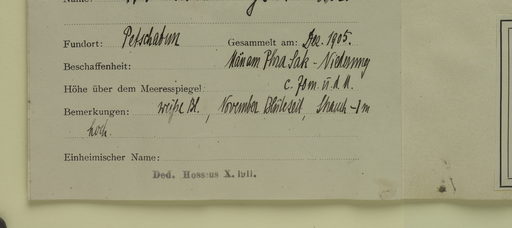 Name:
Fundort: Petschabun Gesammelt am: Dez. 1905.
Beschaffenheit: Mänam Phra Sak - Niederung
Höhe über dem Meeresspiegel c. 70m ü. d. M.
Bemerkungen: weiße Bl., November Blütezeit, Strauch -1m
hoch.
Einheimischer Name:
Ded. Hosseus X. 1911.